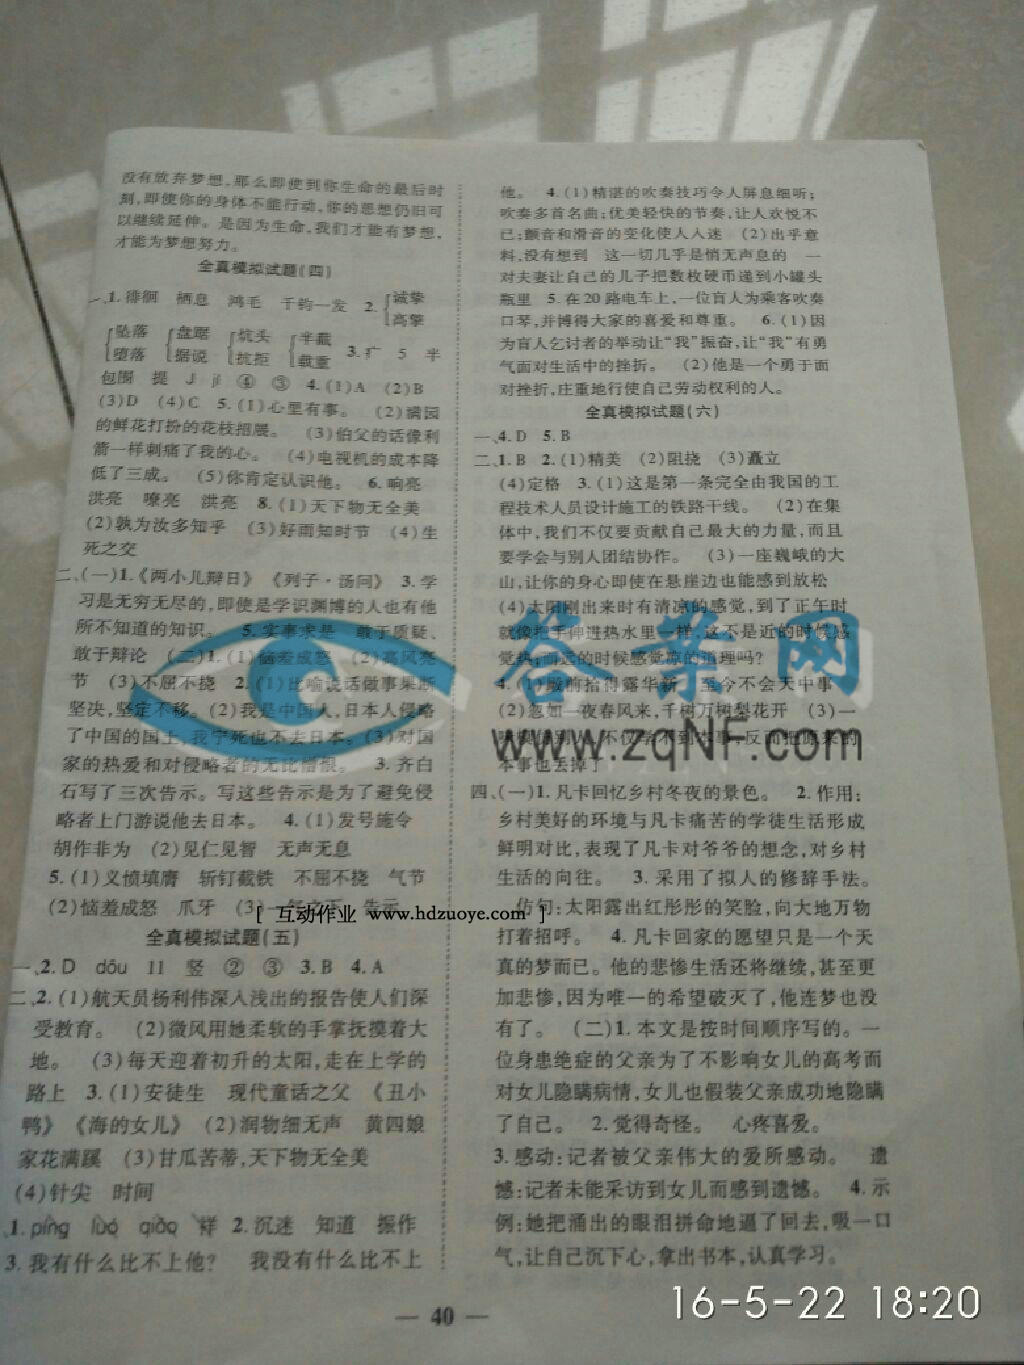 没有放弃梦想,那么即使到你生命的最后时
刻,即使你的身体不能行动,你的思想仍旧可
以继续延伸。是因为生命,我们才能有梦想,
才能为梦想努力。
全真模拟试题(四)
一、1.徘徊 栖息 鸿毛 千钧一发 2.诚挚
高擎
坠落 盘踞 坑头 半截
堕落 据说 抗拒 载重 3.疒 5 半
包围 提 J jí ④ ③ 4.(1)A (2)B
(3)D (4)C 5.(1)心里有事。 (2)满园
的鲜花打扮的花枝招展。 (3)伯父的话像利
箭一样刺痛了我的心。 (4)电视机的成本降
低了三成。 (5)你肯定认识他。 6.响亮
洪亮 嘹亮 洪亮 8.(1)天下物无全美
(2)孰为汝多知乎 (3)好雨知时节 (4)生
死之交
二、(一)1.《两小儿辩日》 《列子·汤问》 3.学
习是无穷无尽的,即使是学识渊博的人也有他
所不知道的知识。 5.实事求是 敢于质疑、
敢于辩论 (二)1.(1)恼羞成怒 (2)高风亮
节 (3)不屈不挠 2.(1)比喻说话做事果断
坚决,坚定不移。(2)我是中国人,日本人侵略
了中国的国土,我宁死也不去日本。(3)对国
家的热爱和对侵略者的无比憎恨。 3.齐白
石写了三次告示。写这些告示是为了避免侵
略者上门游说他去日本。 4.(1)发号施令
胡作非为 (2)见仁见智 无声无息
5.(1)义愤填膺 斩钉截铁 不屈不挠 气节
(2)恼羞成怒 爪牙 (3)一气之下 告示
[ 互动作业 www.hdzuoye.com ]
全真模拟试题(五)
一、2.D dōu 11 竖 ② ③ 3.B 4.A
二、2.(1)航天员杨利伟深入浅出的报告使人们深
受教育。 (2)微风用她柔软的手掌抚摸着大
地。 (3)每天迎着初升的太阳,走在上学的
路上 3.(1)安徒生 现代童话之父 《丑小
鸭》 《海的女儿》 (2)润物细无声 黄四娘
家花满蹊 (3)甘瓜苦蒂,天下物无全美
(4)针尖 时间
1.píng luó qiāo 样 2.沉迷 知道 振作
3.我有什么比不上他? 我没有什么比不上
他。 4.(1)精湛的吹奏技巧令人屏息细听;
吹奏多首名曲;优美轻快的节奏,让人欢悦不
已;颤音和滑音的变化使人入迷 (2)出乎意
料,没有想到 这一切几乎是悄无声息的 一
对夫妻让自己的儿子把数枚硬币递到小罐头
瓶里 5.在20路电车上,一位盲人为乘客吹奏
口琴,并博得大家的喜爱和尊重。 6.(1)因
为盲人乞讨者的举动让“我”振奋,让“我”有勇
气面对生活中的挫折。 (2)他是一个勇于面
对挫折,庄重地行使自己劳动权利的人。
全真模拟试题(六)
一、4.D 5.B
二、1.B 2.(1)精美 (2)阻挠 (3)矗立
(4)定格 3.(1)这是第一条完全由我国的工
程技术人员设计施工的铁路干线。 (2)在集
体中,我们不仅要贡献自己最大的力量,而且
要学会与别人团结协作。 (3)一座巍峨的大
山,让你的身心即使在悬崖边也能感到放松
(4)太阳刚出来时有清凉的感觉,到了正午时
就像把手伸进热水里一样,这不是近的时候感
觉热,而远的时候感觉凉的道理吗?
4.(1)殿前拾得露华新 至今不会天中事
(2)忽如一夜春风来,千树万树梨花开 (3)一
不仅学不到本事,反而把原来的
本事也丢掉了
四、(一)1.凡卡回忆乡村冬夜的景色。 2.作用:
乡村美好的环境与凡卡痛苦的学徒生活形成
鲜明对比,表现了凡卡对爷爷的想念,对乡村
生活的向往。 3.采用了拟人的修辞手法。
仿句:太阳露出红彤彤的笑脸,向大地万物
打着招呼。 4.凡卡回家的愿望只是一个天
真的梦而已。他的悲惨生活还将继续,甚至更
加悲惨,因为唯一的希望破灭了,他连梦也没
有了。 (二)1.本文是按时间顺序写的。一
位身患绝症的父亲为了不影响女儿的高考而
对女儿隐瞒病情,女儿也假装父亲成功地隐瞒
了自己。 2.觉得奇怪。 心疼喜爱。
3.感动:记者被父亲伟大的爱所感动。 遗
憾:记者未能采访到女儿而感到遗憾。 4.示
例:她把涌出的眼泪拼命地逼了回去,吸一口
气,让自己沉下心,拿出书本,认真学习。
答案网
www.zqNF.com
— 40 —
16-5-22 18:20